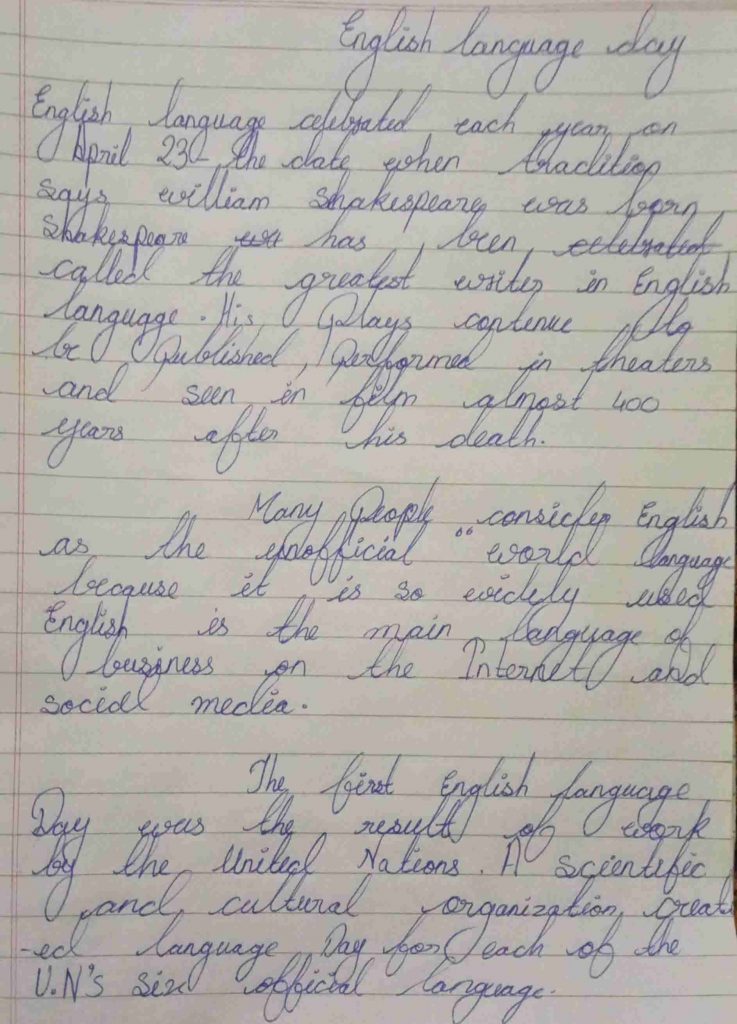 English language day
English language celebrated each year on
April 23- the date when tradition
says william Shakespeare was born
Shakespeare has been celebrated
called the greatest writer in English
language. His Plays contenue to
be Published, Performed in theaters
and seen in film almost 400
years after his death.
Many People consider English
as the unofficial "world language
because it is so widely used
English is the main language of
business on the Internet and
social media.
The first English language
Day was the result of work
by the United Nations. A scientific
and cultural organization creat
-ed language Day for each of the
U.N's six official language.